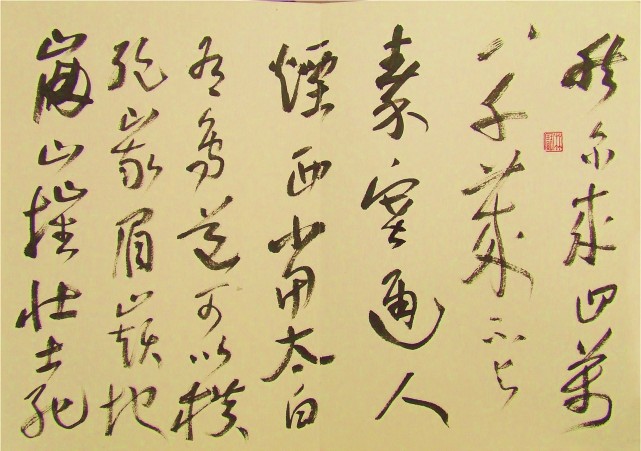 然尔來四萬
八千歲不与
秦塞通人
煙西当太白
有鳥道可以橫
絕峩眉巔地
崩山摧壯士死